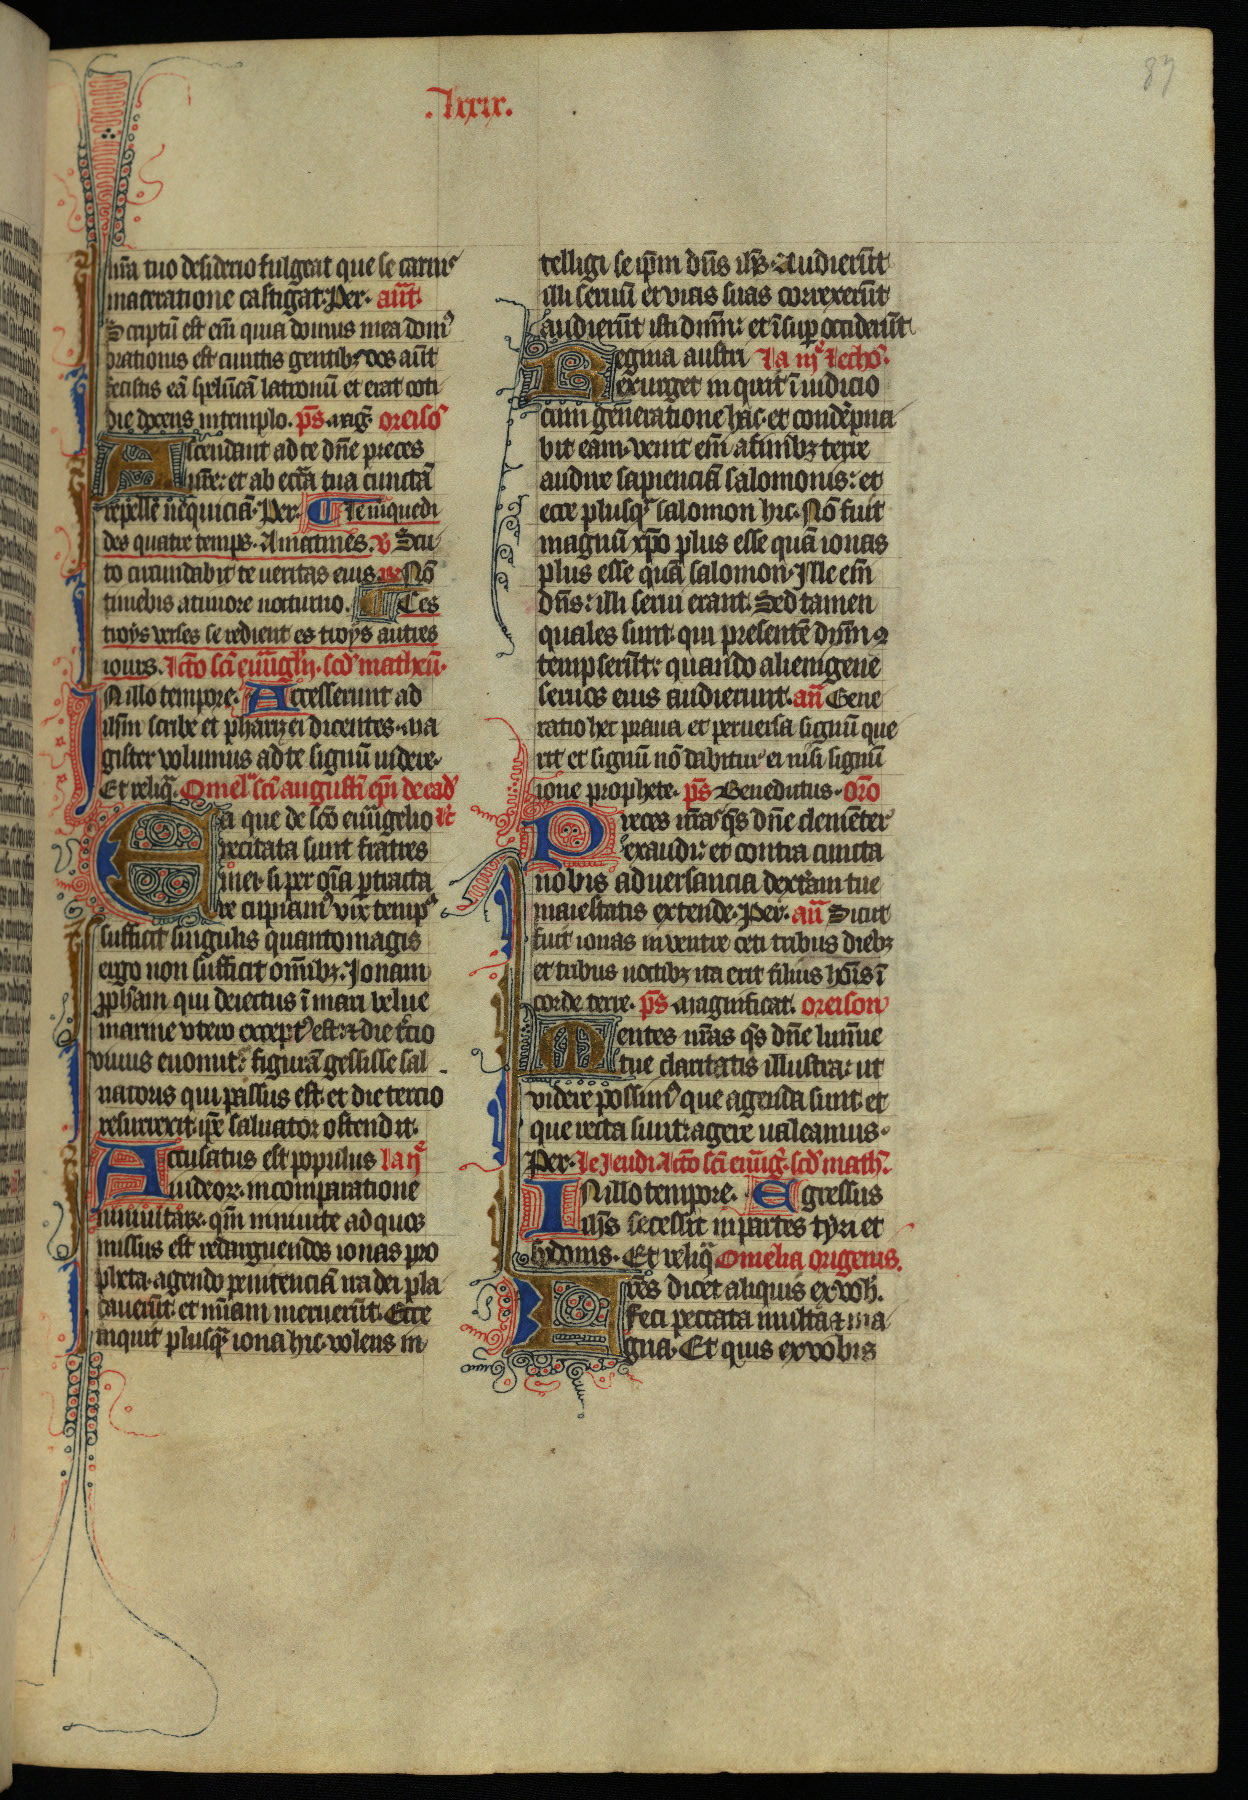 .lxxx.
87
nr̄a tuo desiderio fulgeat que se carnis
maceratione castigat. Per. añt.
Scriptū est em̄ quia domus mea domꝰ
orationis est cunctis gentibꝫ vos aūt
fecistis eā spelūcā latronū et erat coti
die docens in templo. ps̄. mag̃. oreisō
Ascendant ad te dn̄e preces
nr̄e: et ab eccl̄ia tua cunctā
repelle neq̄uiciā. Per. Le mquedi
des quatre temps. A matines. v̄ Scu
to circundabit te veritas eius. r̄ Nō
timebis a timore nocturno. Ces
troys verses se redient es troys autres
iours. lc̄to sc̄i euu̅gl̄ij. scd̄ matheū.
IN illo tempore. Accesserunt ad
ih̄m scribe et pharizei dicentes. ma
gister volumus a te signū videre.
Et reliq̄. Omel̄ sc̄i augustī ep̄i de ead̄
Ea que de sc̄o euu̅gelio lc̄
recitata sunt fratres
mei. si per oīa p̄tracta
re cupiamꝰ vix tempꝰ
sufficit singulis quanto magis
ergo non sufficit om̄ibꝫ. Ionam
ꝓph̄am qui deiectus ī mari belue
marine vtero exceptꝰ est: ⁊ die t̄cio
viuus euomit: figurā gessisse sal
uatoris qui passus est et die tercio
resurrexit. ip̄e saluator ostendit.
Accusatus est populus la ij͛
iudeoꝝ. in comparatione
niniuitaꝝ. qm̄ niniuite ad quos
missus est redarguendos ionas pro
pheta. agendo penitenciā ira dei pla
cauerūt: et miām meruerūt. Ecce
inquit plusq̄ iona hic. volens in
telligi se ip̄m dn̄s ih̄s. Audierūt
illi seruū et vias suas correxerūt
audierūt isti dn̄m: et īsup̄ occiderūt.
Regina austri La iij͛ lecho͛.
exurget inquit ī iudicio
cum generatione hāc. et condēpna
bit eam. venit em̄ a finibꝫ terre
audire sapienciā salomonis: et
ecce plusq̄ salomon hic. Nō fuit
magnū xp̄o plus esse quā ionas
plus esse quā salomon. Ille em̄
dn̄s: illi serui erant. Sed tamen
quales sunt qui presentē dn̄m ꝯ
tempserūt: quando alienigene
seruos eius audierunt. an̄ Gene
ratio hec praua et peruersa signū que
rit et signū nō dabitur ei nisi signū
ione prophete. ps̄ Benedictus. oro̅
Preces nr̄as q̄s dn̄e clemēter
exaudi: et contra cuncta
nobis aduersancia dext̄am tue
maiestatis extende. Per. añ Sicut
fuit ionas in ventre ceti tribus diebꝫ
et tribus noctibꝫ ita erit filius hōis ī
corde terre. ps̄ magnificat. oreison
Mentes nr̄as q̄s dn̄e lumīe
tue claritatis illustra: ut
videre possimꝰ que agenda sunt et
que recta sunt: agere ualeamus.
Per. Le Jeudi. lc̄to sc̄i euu̅g̃. scd̄ math̄.
IN illo tempore. Egressus
ih̄s secessit in partes tyri et
sydonis. Et reliq̄ Omelia origenis.
Fr̄es dicet aliquis ex voh̄.
feci peccata multa ⁊ ma
gna. Et quis ex vobis